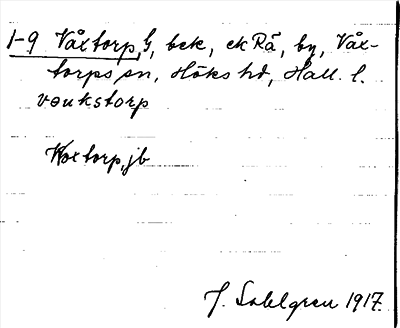 1-9 Våxtorp, G, bek, ekRå, by, Våx-
torps sn, Höks hd, Hall. l.
vɵukstorp
Woxtorp, jb
J. Sahlgren 1917.